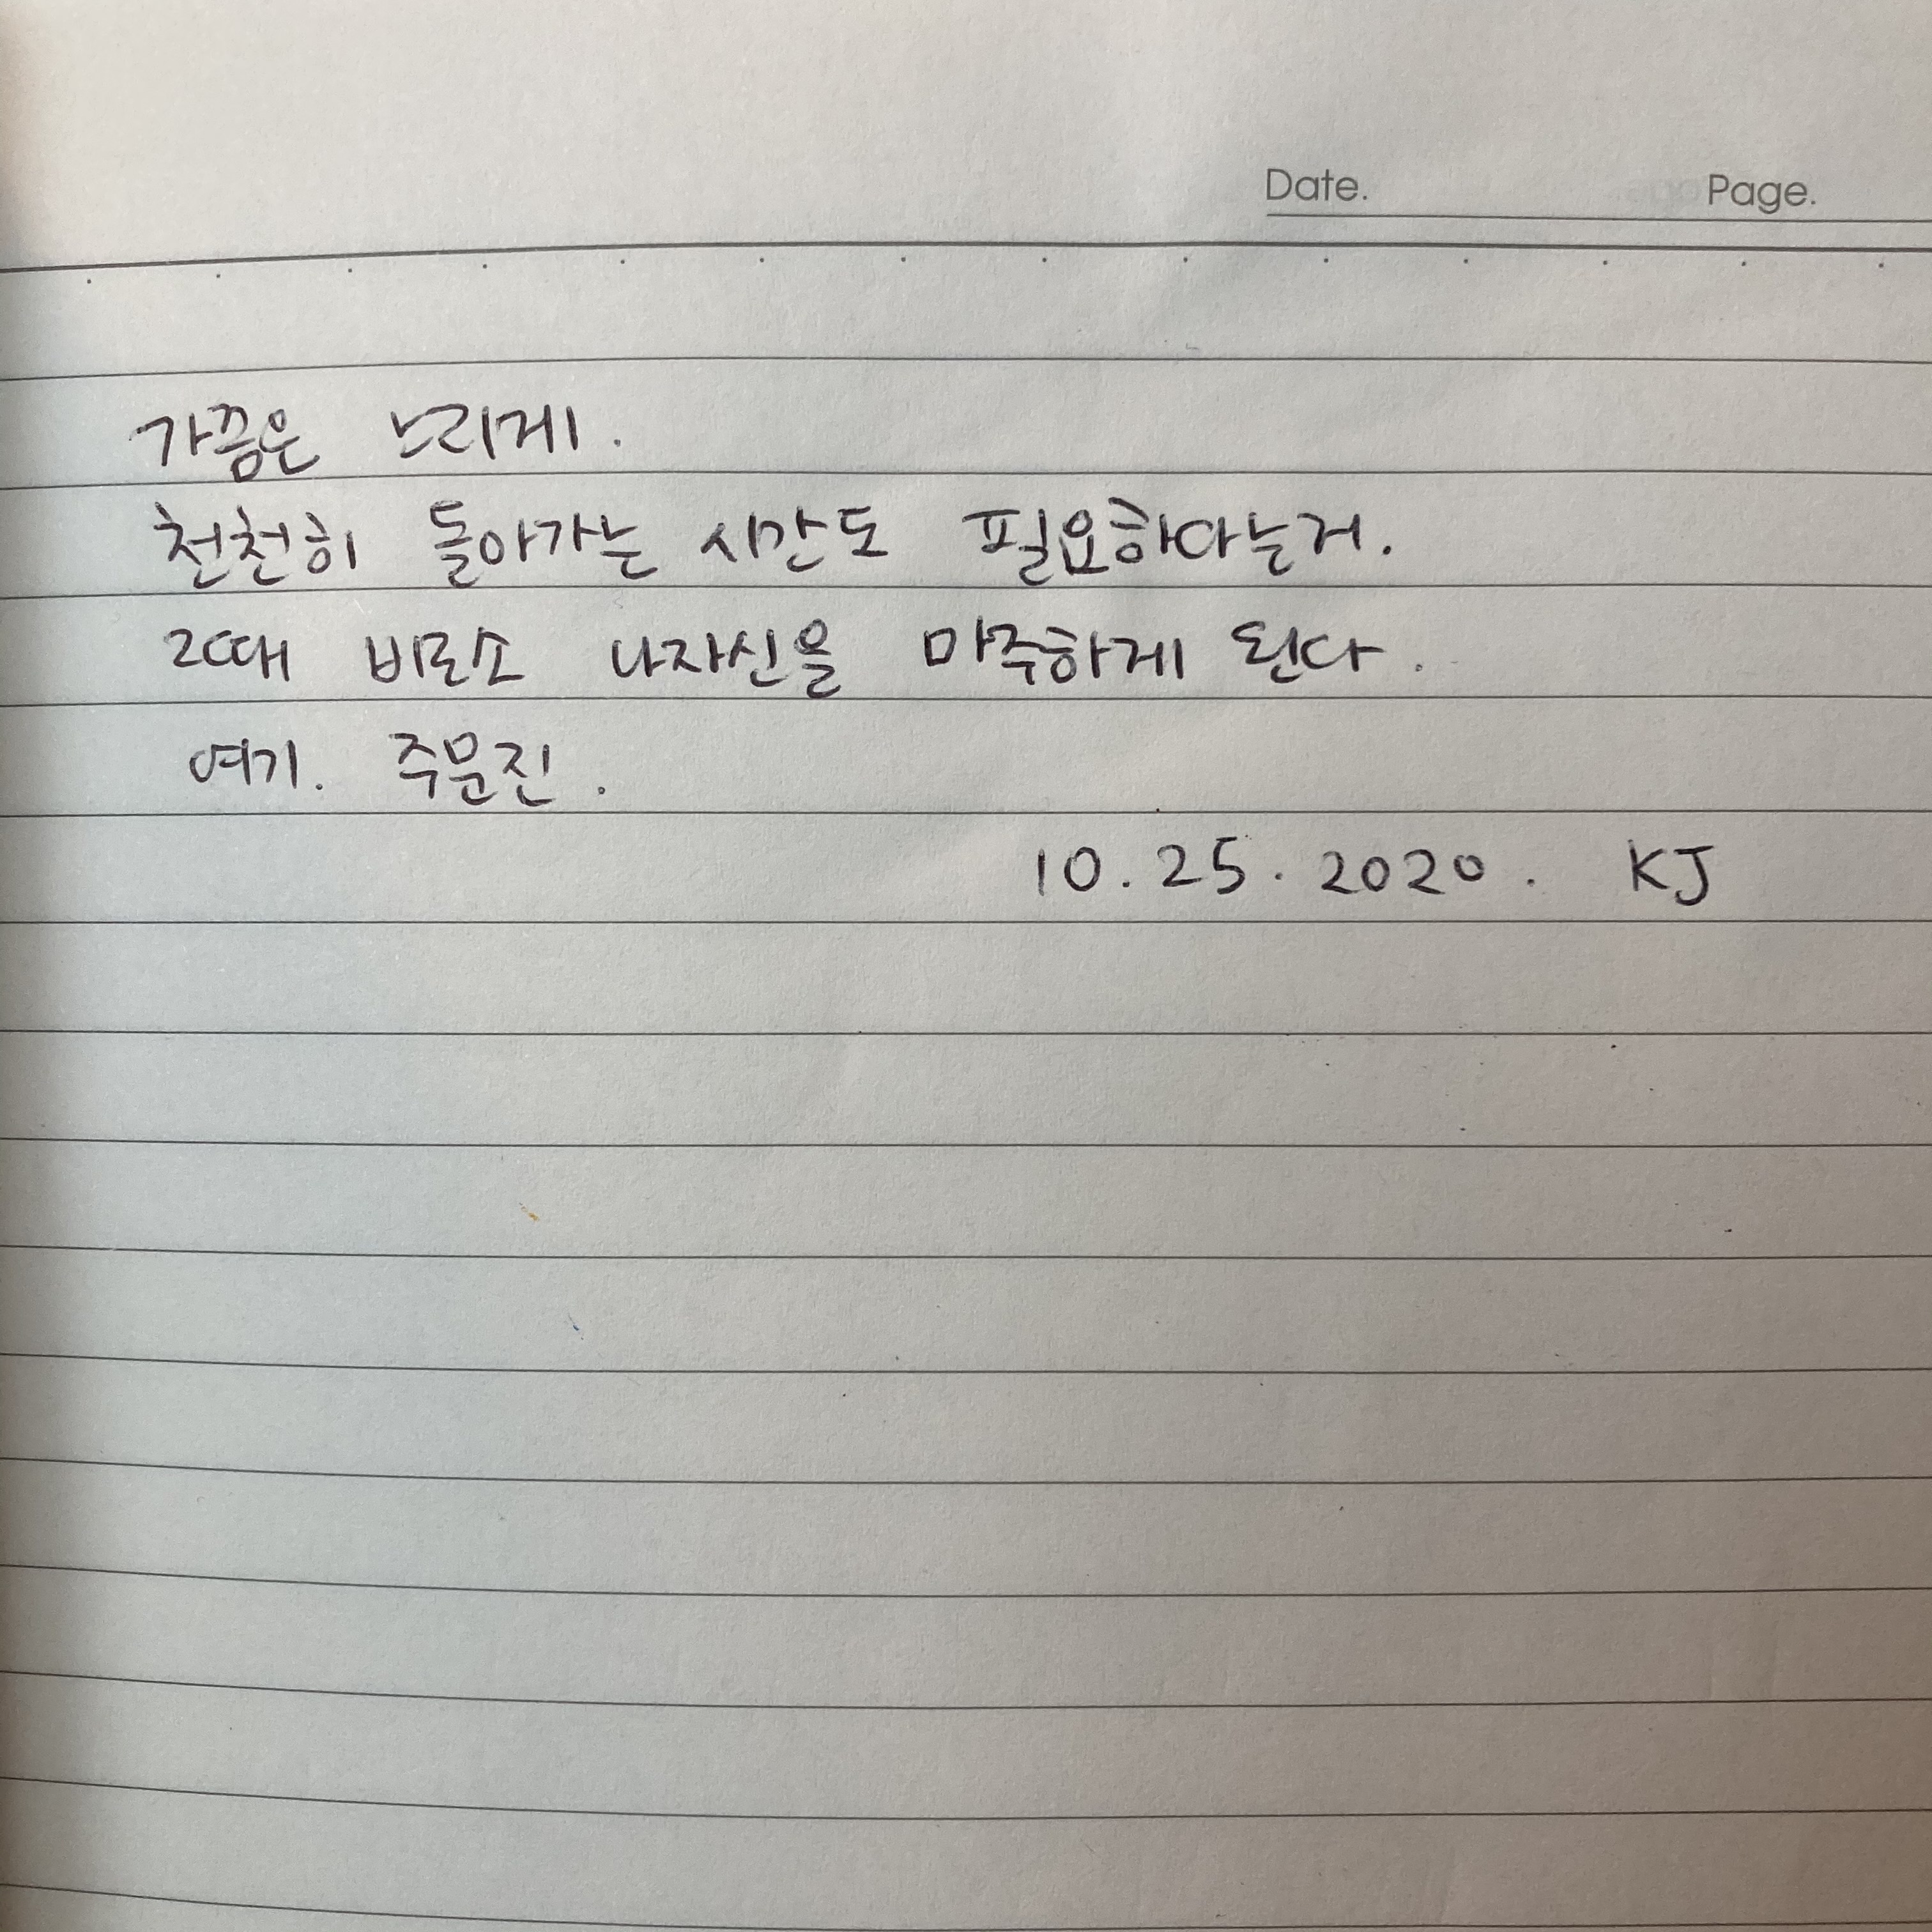 Date. Page.
가끔은 느리게.
천천히 돌아가는 시간도 필요하다는거.
그때 비로소 나자신을 마주하게 된다.
여기. 주문진.
10.25.2020. KJ